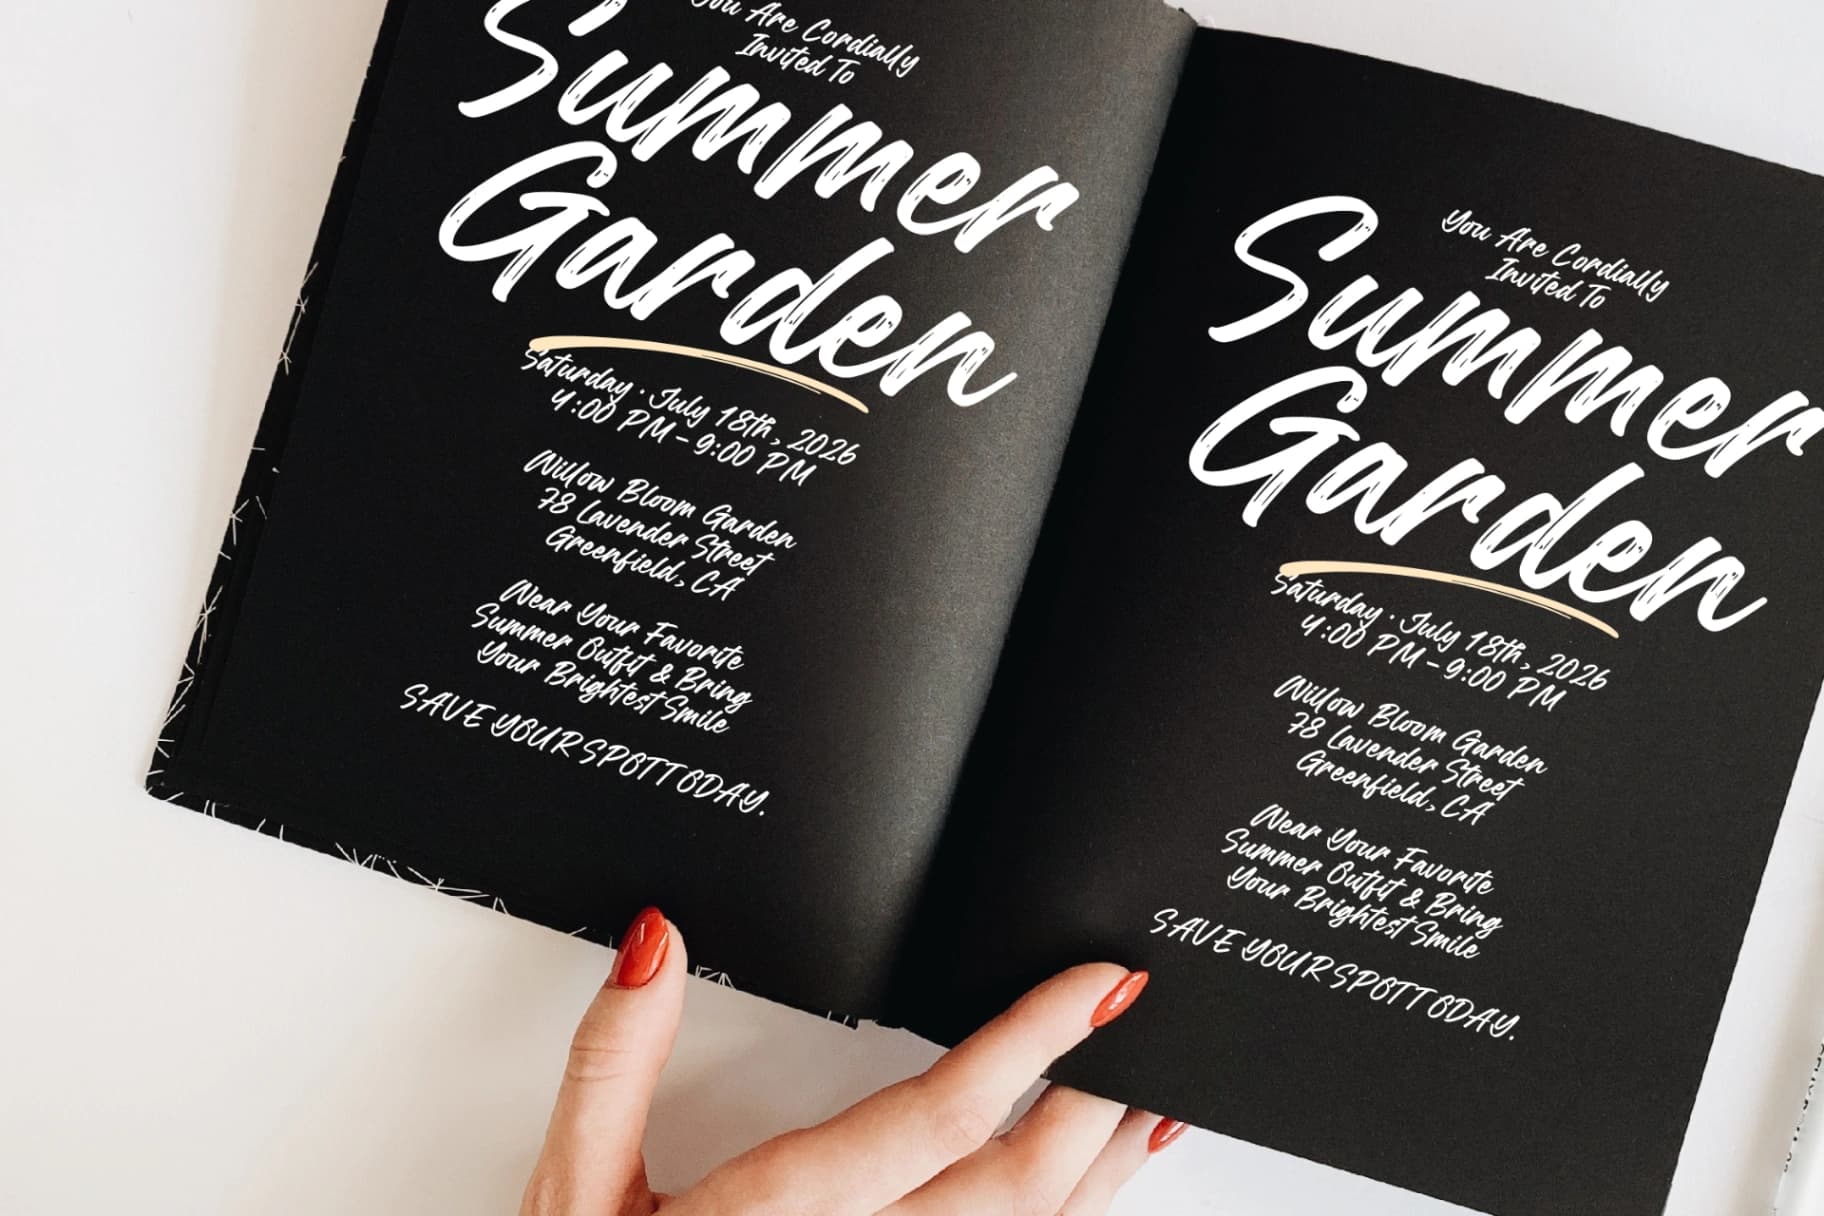 You Are Cordially
Invited To
Summer
Garden
Saturday · July 18th, 2026
4:00 PM - 9:00 PM
Willow Bloom Garden
78 Lavender Street
Greenfield, CA
Wear Your Favorite
Summer Outfit & Bring
Your Brightest Smile
SAVE YOUR SPOT TODAY.
You Are Cordially
Invited To
Summer
Garden
Saturday · July 18th, 2026
4:00 PM - 9:00 PM
Willow Bloom Garden
78 Lavender Street
Greenfield, CA
Wear Your Favorite
Summer Outfit & Bring
Your Brightest Smile
SAVE YOUR SPOT TODAY.